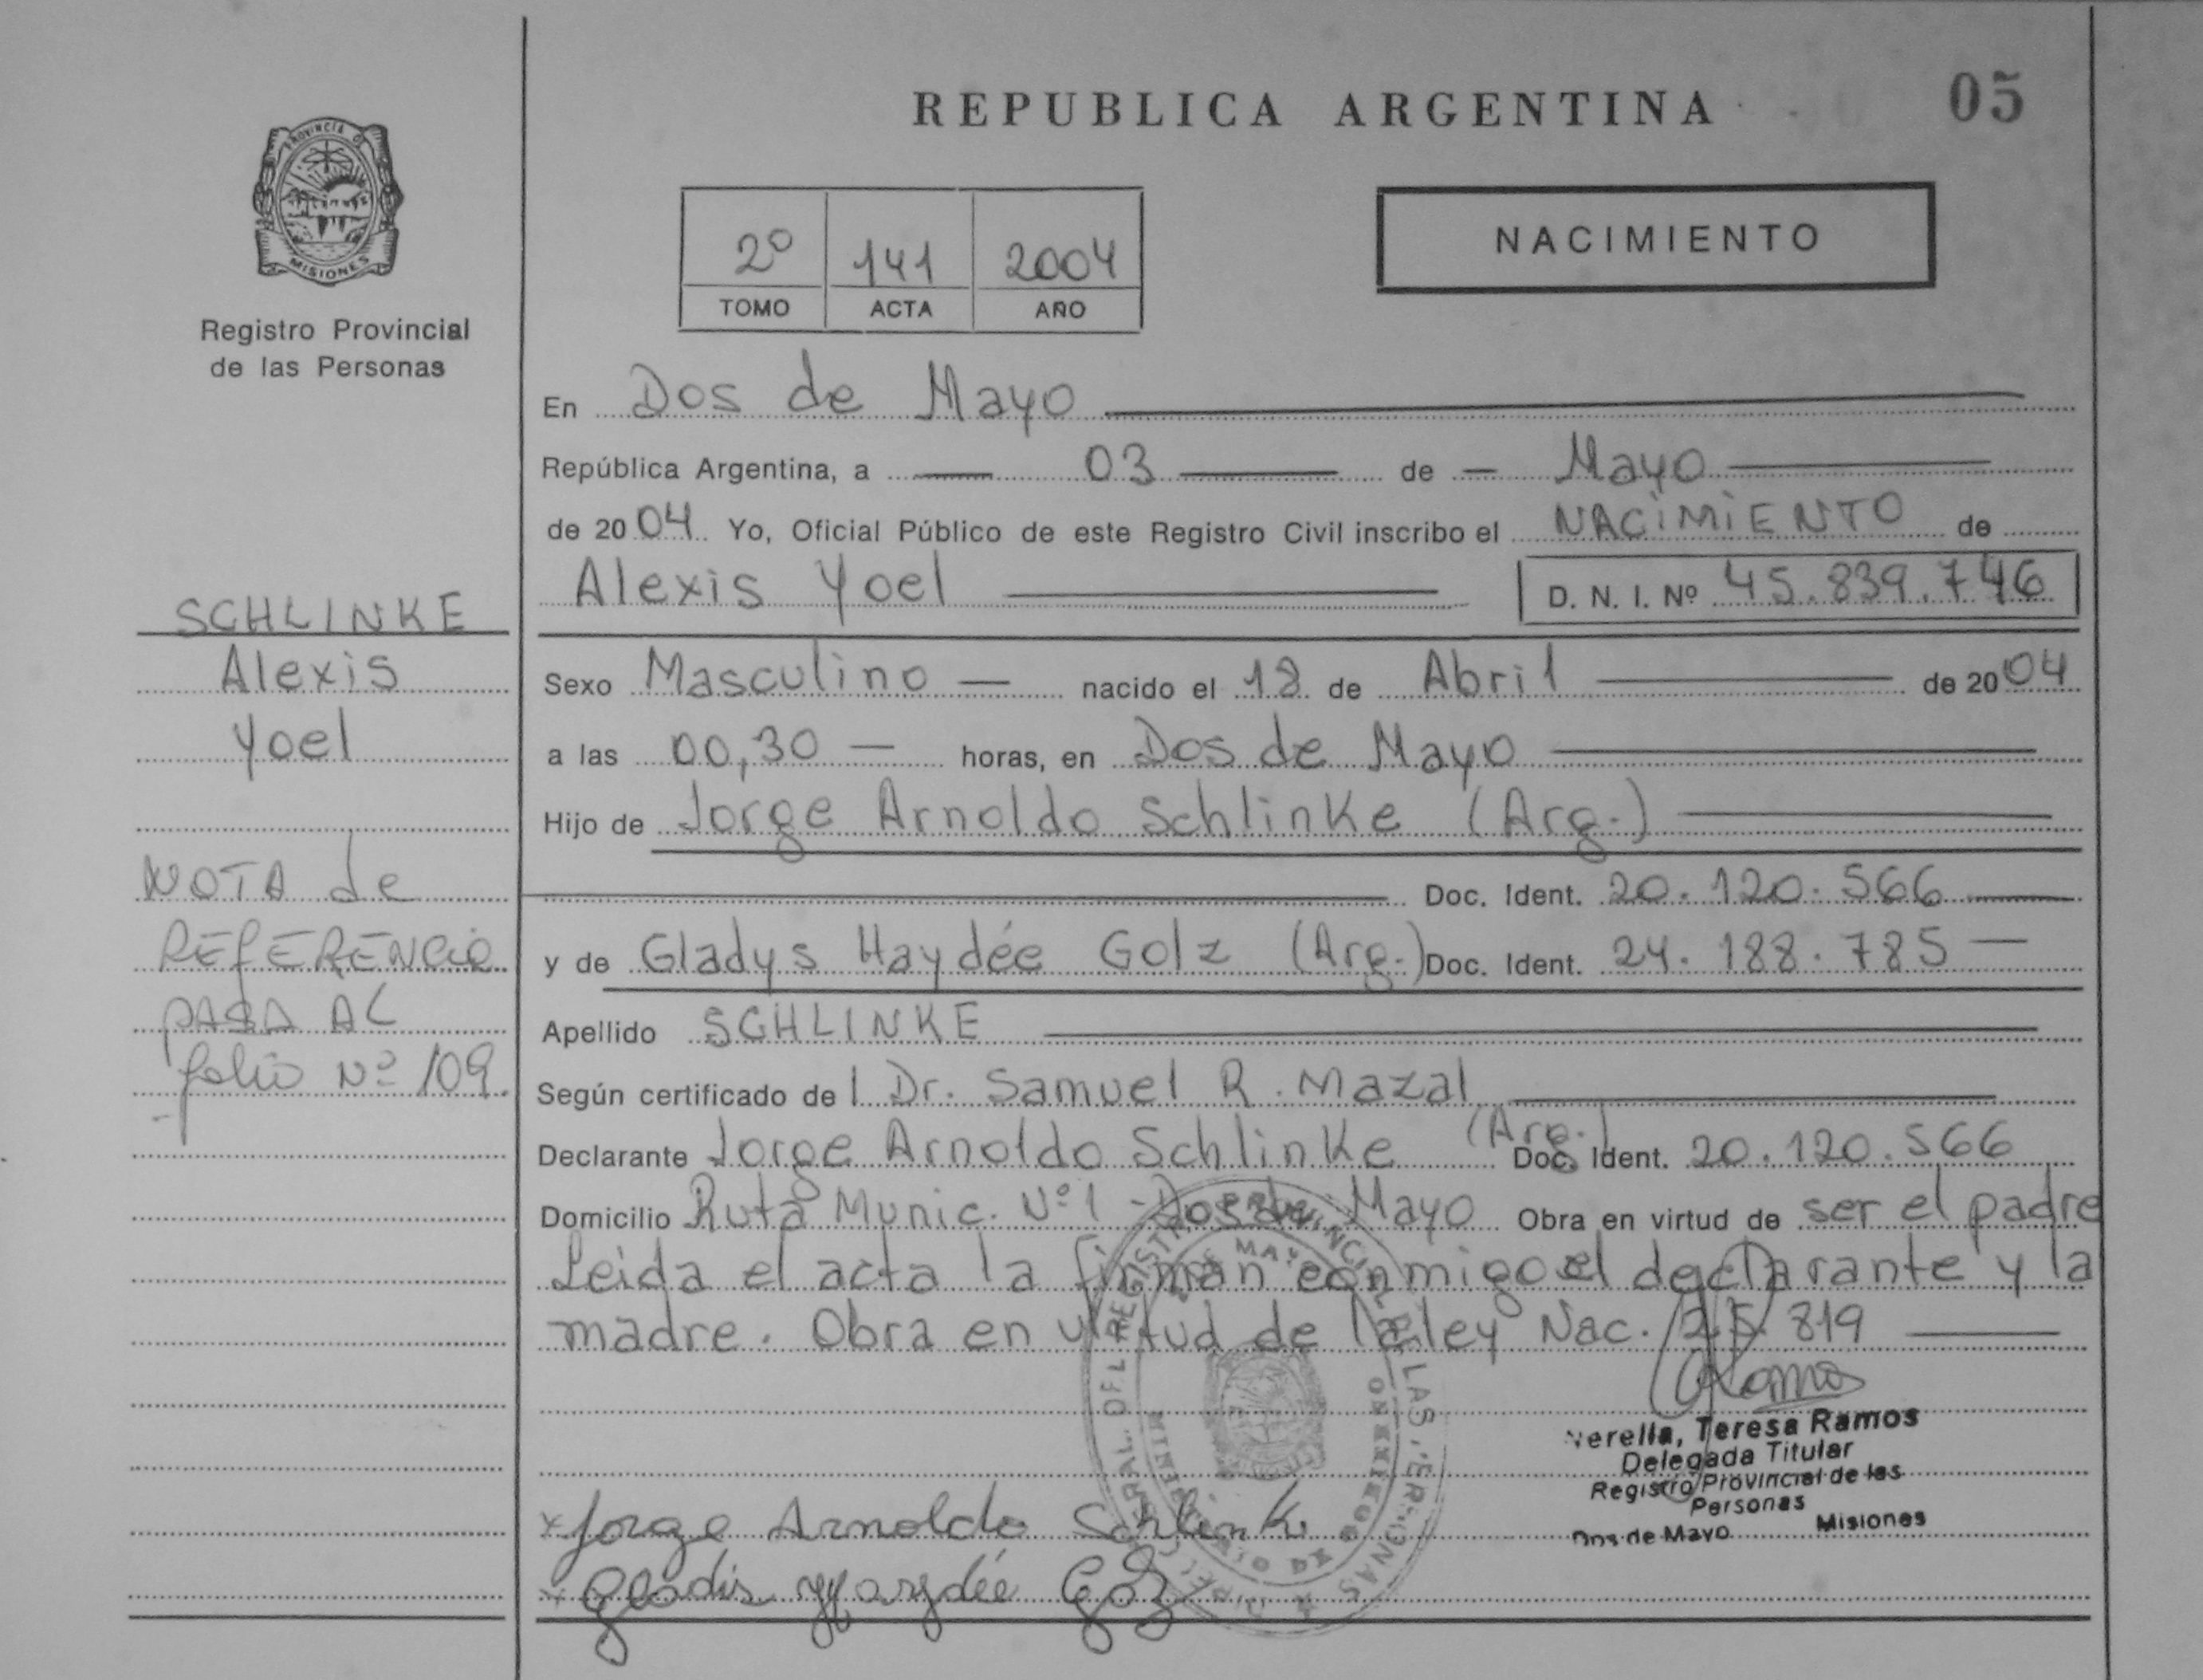 REPUBLICA ARGENTINA
05
PROVINCIA DE
MISIONES
Registro Provincial
de las Personas
2º 141 2004
TOMO ACTA AÑO
NACIMIENTO
En Dos de Mayo
República Argentina, a 03 de Mayo
de 2004 Yo, Oficial Público de este Registro Civil inscribo el NACIMIENTO de
Alexis Yoel D. N. I. Nº 45.839.746
SCHLINKE
Alexis
Yoel
NOTA de
REFERENCIA
PASA AL
folio Nº 109
Sexo Masculino nacido el 18 de Abril de 2004
a las 00,30 horas, en Dos de Mayo
Hijo de Jorge Arnoldo Schlinke (Arg.)
Doc. Ident. 20.120.566
y de Gladys Haydée Golz (Arg.) Doc. Ident. 24.188.785
Apellido SCHLINKE
Según certificado de l Dr. Samuel R. Mazal
Declarante Jorge Arnoldo Schlinke (Arg.) Doc. Ident. 20.120.566
Domicilio Ruta Munic. Nº 1 - Dos de Mayo Obra en virtud de ser el padre
Leida el acta la firman conmigo el declarante y la
madre. Obra en virtud de la ley Nac. 25.819
Ramos
Teresa Ramos
Delegada Titular
Registro Provincial de las
Personas
Dos de Mayo Misiones
x Jorge Arnoldo Schlink
x Gladis Haydée Golz